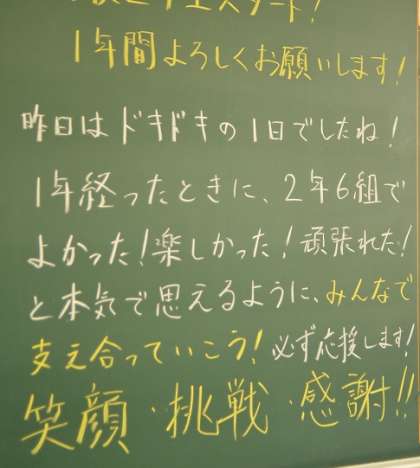 スタート!
1年間よろしくお願いします!
昨日はドキドキの1日でしたね!
1年経ったときに、2年6組で
よかった!楽しかった!頑張れた!
と本気で思えるように、みんなで
支え合っていこう!必ず応援します!
笑顔・挑戦・感謝!!